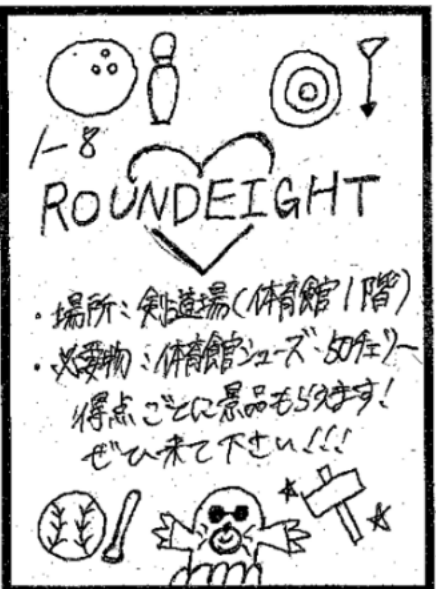 1-8
ROUNDEIGHT
・場所：剣道場(体育館1階)
・必要物：体育館シューズ・50チェリー
得点ごとに景品もらえます！
ぜひ来て下さい！！！